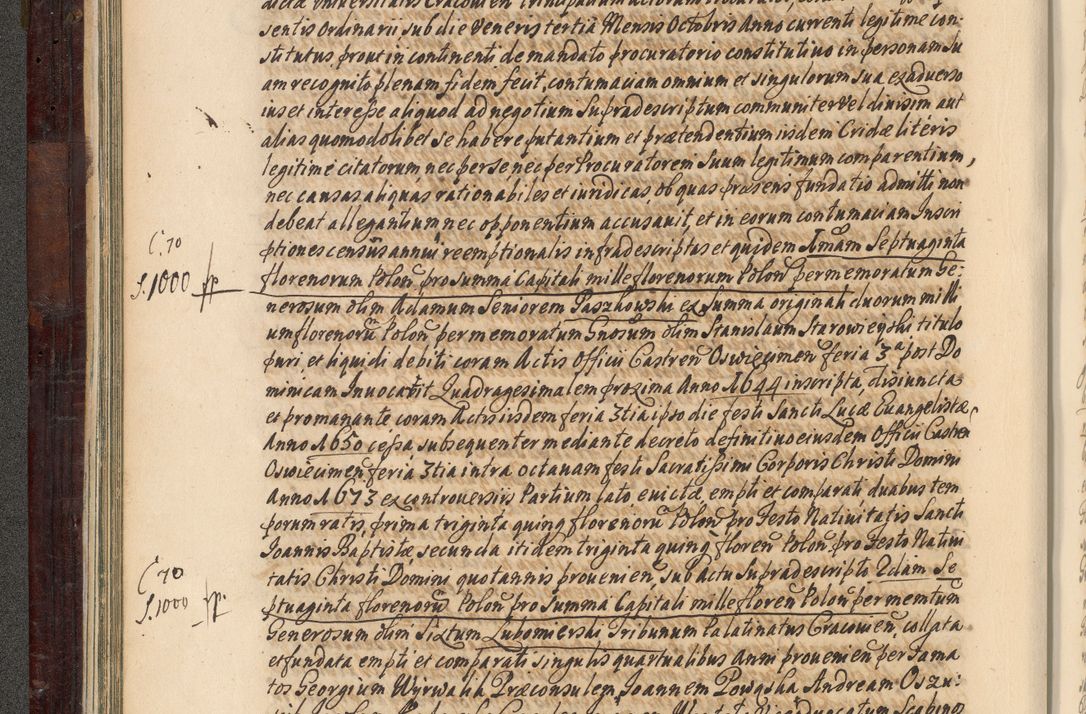 sentis Ordinarii sub die Veneris tertia Mensis Octobris Anno currenti legitime con-
stitutus, prout in continenti de mandato procuratorio constitutivo in personam Su
am recognito plenam fidem fecit, contumaciam omnium et singulorum sua ex adverso
ius et interesse aliquod ad negotium supradescriptum communiter vel divisim aut
alias quomodolibet se habere putantium et prætendentium iisdem Cridæ literis
legitime citatorum nec per se nec per Procuratorem Suum legitimum comparentium,
nec causas aliquas rationabiles et iuridicas, ob quas præsens fundatio admitti non
debeat allegantium nec opponentium accusavit, et in eorum contumaciam Inscri
ptiones censûs annui reemptionalis infradescriptas et quidem 1mam Septuaginta
C. 70
f. 1000
florenorum Polon̄, pro summa Capitali mille florenorum Polon̄ per memoratum Ge:
nerosum olim Adamum Seniorem Paszkowski ex summa originali duorum milli
um florenorū Polon̄, per memoratum Gnosum olim Stanislaum Starowieyski titulo
puri et liquidi debiti coram Actis Officii Castren̄ Oswiecimen̄ feria 3ª post Do
minicam Invocavit Quadragesimalem proxima Anno 1644 inscripta, disiuncta
et promanante coram Actis iisdem feria 3tia ipso die festi Sancti Lucæ Evangelistæ
Anno 1650 cessa, subsequenter mediante decreto definitivo eiusdem Officii Castren
Oswiecimen̄ feria 3tia intra octavam festi Sacratissimi Corporis Christi Domini
Anno 1673 ex controversiis Partium lato evictæ, empti et comparati duabus tem
porum ratis, prima triginta quinq florenorū Polon̄ pro Festo Nativitatis Sancti
Joannis Baptistæ, secunda itidem triginta quinq floren̄ Polon̄ pro Festo Nativi
tatis Christi Domini, quotannis provenien̄, sub Actu supradescripto 2dam Se
C. 70
f. 1000
ptuaginta florenorū Polon̄ pro summa Capitali mille floren̄ Polon̄ per memtum
Generosum olim Sixtum Lubomierski Tribunum Palatinatus Cracovien̄, collata
et fundata empti et comparati singulis quartualibus Anni provenien̄ per Fama
tos Georgium Wyrwalik Præconsulem, Joannem Powąska, Andream Oszu: